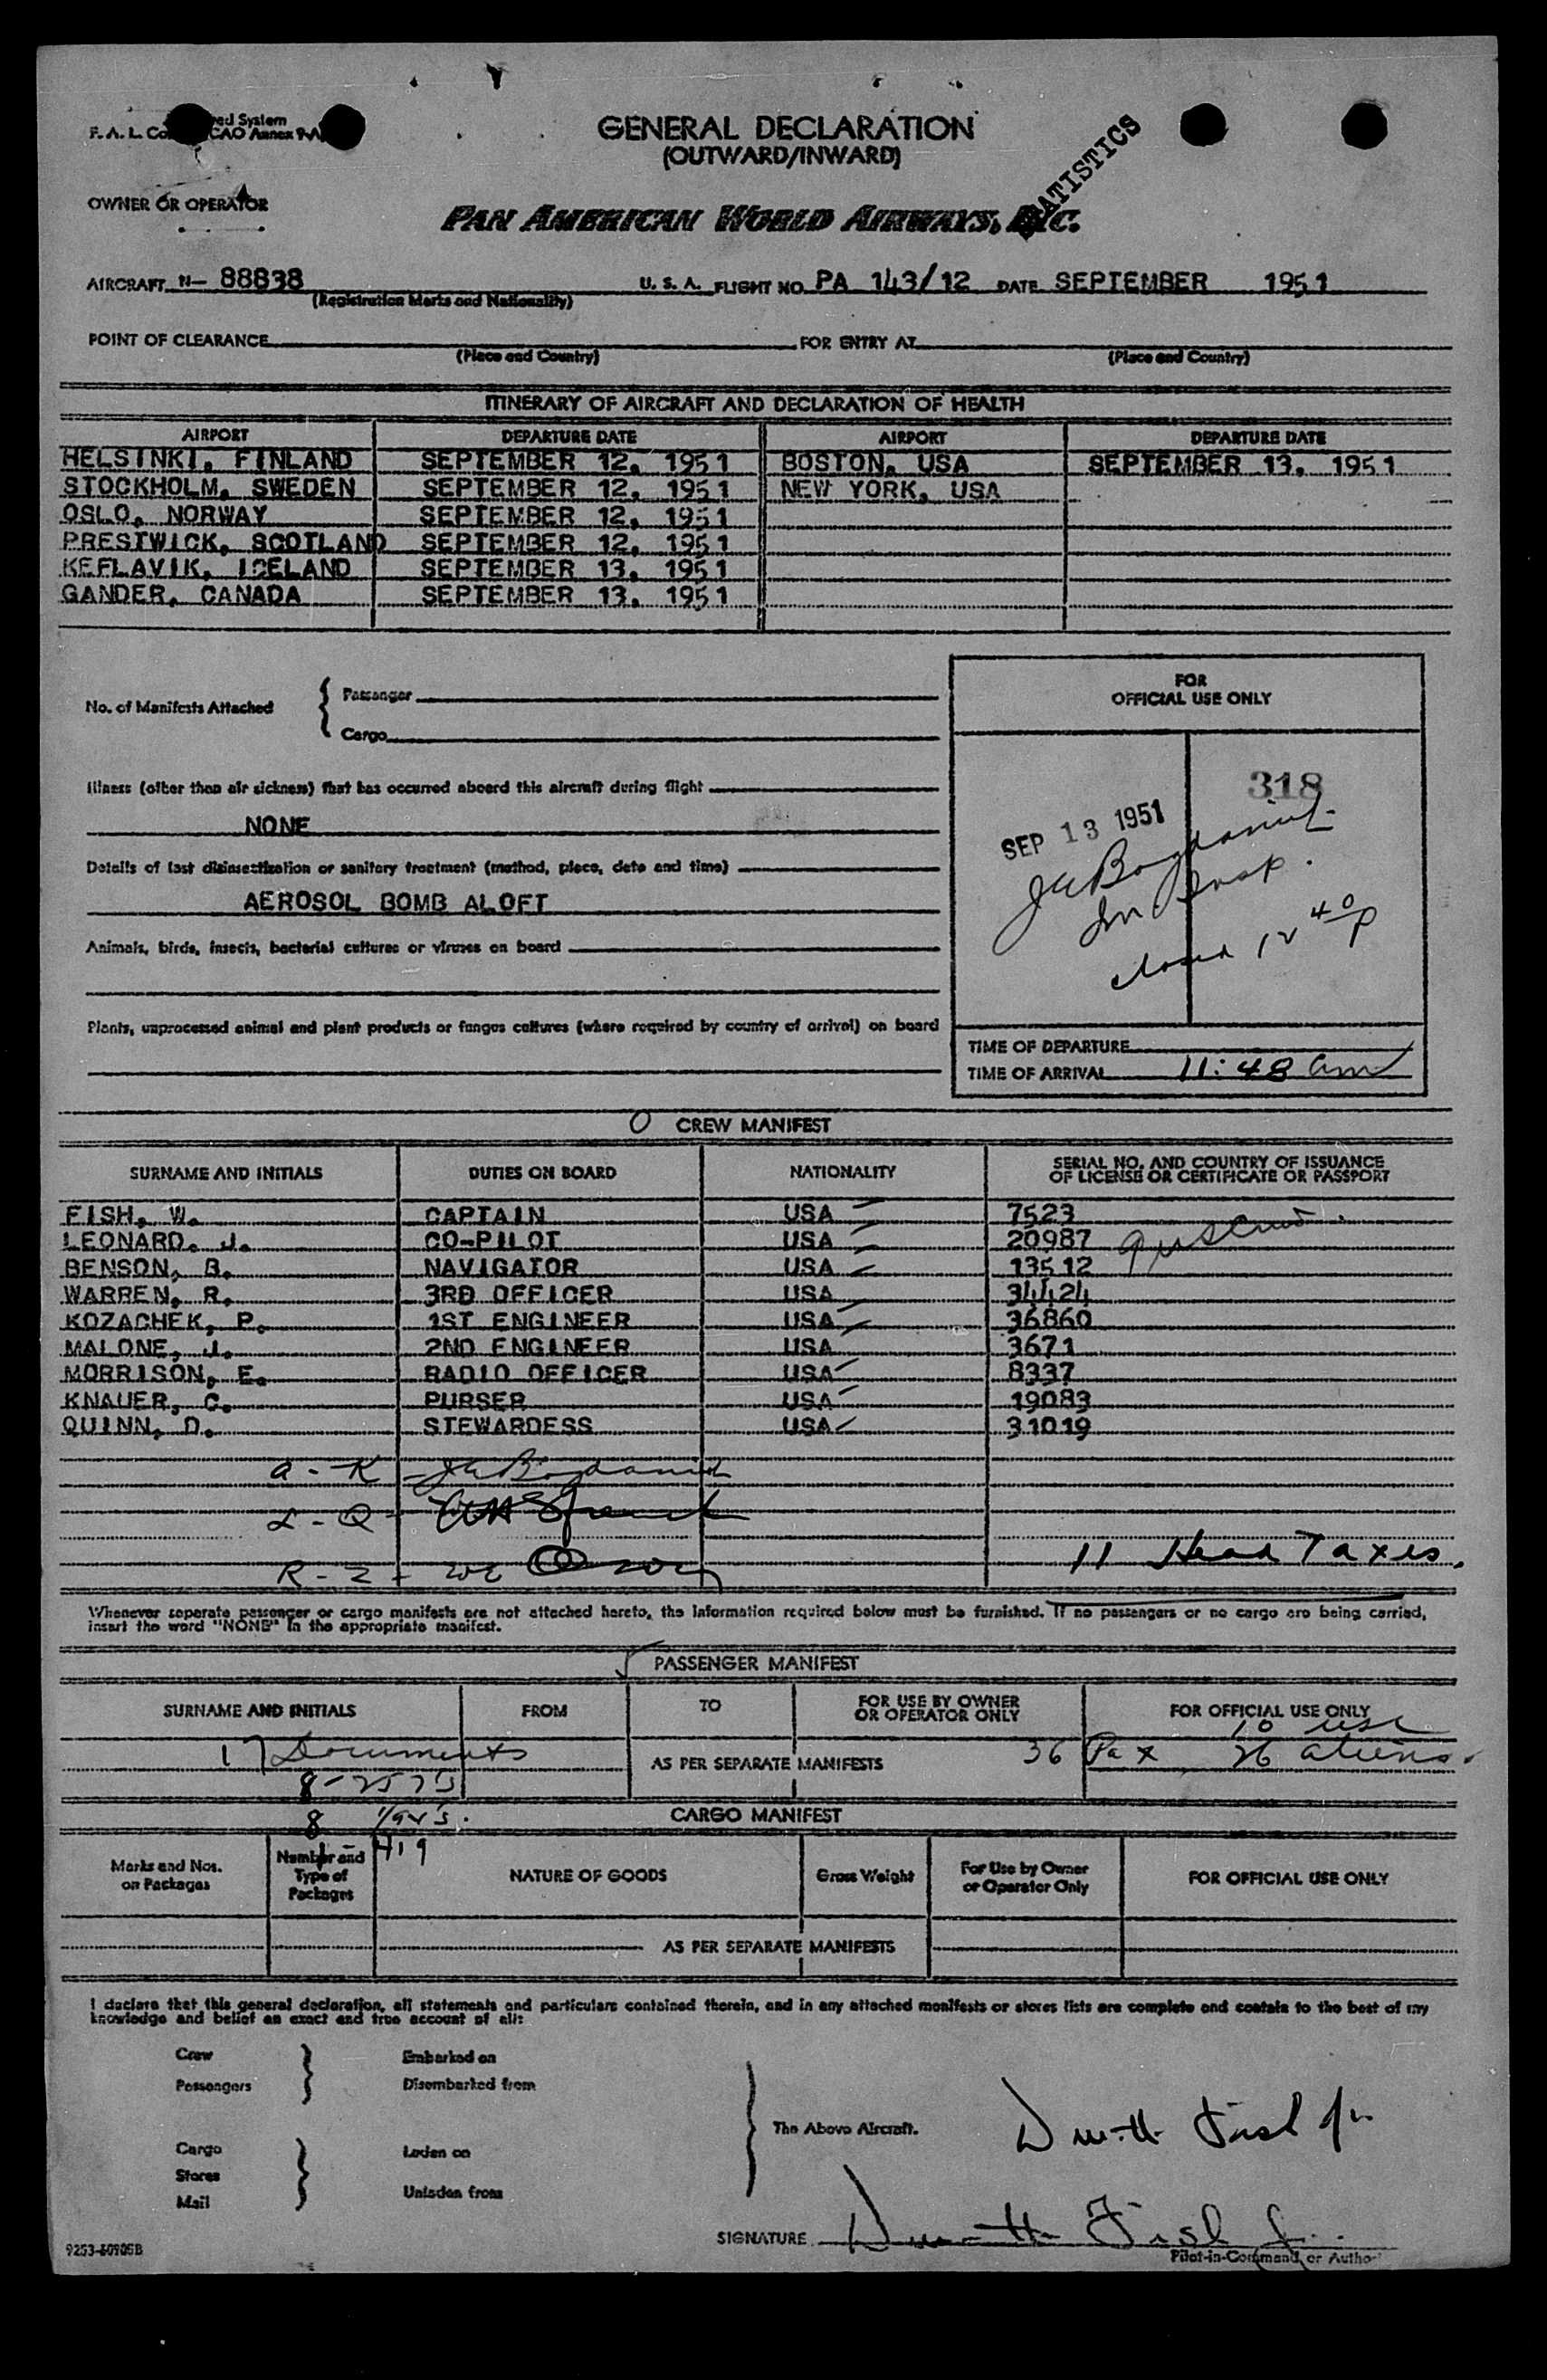 GENERAL DECLARATION
(OUTWARD/INWARD)
STATISTICS
OWNER OR OPERATOR
PAN AMERICAN WORLD AIRWAYS, INC.
AIRCRAFT N- 88838 U. S. A. FLIGHT NO. PA 143/12 DATE SEPTEMBER 1951
(Registration Marks and Nationality)
POINT OF CLEARANCE FOR ENTRY AT
(Place and Country) (Place and Country)
ITINERARY OF AIRCRAFT AND DECLARATION OF HEALTH
AIRPORT DEPARTURE DATE AIRPORT DEPARTURE DATE
HELSINKI, FINLAND SEPTEMBER 12, 1951 BOSTON, USA SEPTEMBER 13, 1951
STOCKHOLM, SWEDEN SEPTEMBER 12, 1951 NEW YORK, USA
OSLO, NORWAY SEPTEMBER 12, 1951
PRESTWICK, SCOTLAND SEPTEMBER 12, 1951
KEFLAVIK, ICELAND SEPTEMBER 13, 1951
GANDER, CANADA SEPTEMBER 13, 1951
No. of Manifests Attached { Passenger
Cargo
FOR
OFFICIAL USE ONLY
Illness (other than air sickness) that has occurred aboard this aircraft during flight
NONE
Details of last disinsectization or sanitary treatment (method, place, date and time)
AEROSOL BOMB ALOFT
Animals, birds, insects, bacterial cultures or viruses on board
Plants, unprocessed animal and plant products or fungus cultures (where required by country of arrival) on board
318
SEP 13 1951
closed 12 40 p
TIME OF DEPARTURE
TIME OF ARRIVAL 11:48 am
CREW MANIFEST
SURNAME AND INITIALS DUTIES ON BOARD NATIONALITY SERIAL NO. AND COUNTRY OF ISSUANCE
OF LICENSE OR CERTIFICATE OR PASSPORT
FISH, W. CAPTAIN USA 7523
LEONARD, J. CO-PILOT USA 20987
BENSON, B. NAVIGATOR USA 13512
WARREN, R. 3RD OFFICER USA 34424
KOZACHEK, P. 1ST ENGINEER USA 36860
MALONE, J. 2ND ENGINEER USA 3671
MORRISON, E. RADIO OFFICER USA 8337
KNAUER, C. PURSER USA 19083
QUINN, D. STEWARDESS USA 31019
a - K -
L - Q -
R - Z -
11 Head Taxes.
Whenever separate passenger or cargo manifests are not attached hereto, the information required below must be furnished. If no passengers or no cargo are being carried,
insert the word "NONE" in the appropriate manifest.
PASSENGER MANIFEST
SURNAME AND INITIALS FROM TO FOR USE BY OWNER
OR OPERATOR ONLY FOR OFFICIAL USE ONLY
10 usc
17 Documents AS PER SEPARATE MANIFESTS 36 Pax 26 aliens.
8-257's
8
CARGO MANIFEST
Marks and Nos.
on Packages
Number and
Type of
Packages
NATURE OF GOODS Gross Weight For Use by Owner
or Operator Only FOR OFFICIAL USE ONLY
AS PER SEPARATE MANIFESTS
I declare that this general declaration, all statements and particulars contained therein, and in any attached manifests or stores lists are complete and contain to the best of my
knowledge and belief an exact and true account of all:
Crew Embarked on
Passengers Disembarked from
The Above Aircraft.
Cargo Laden on
Stores
Mail Unladen from
SIGNATURE
Pilot-in-Command or Autho
9253-50905B